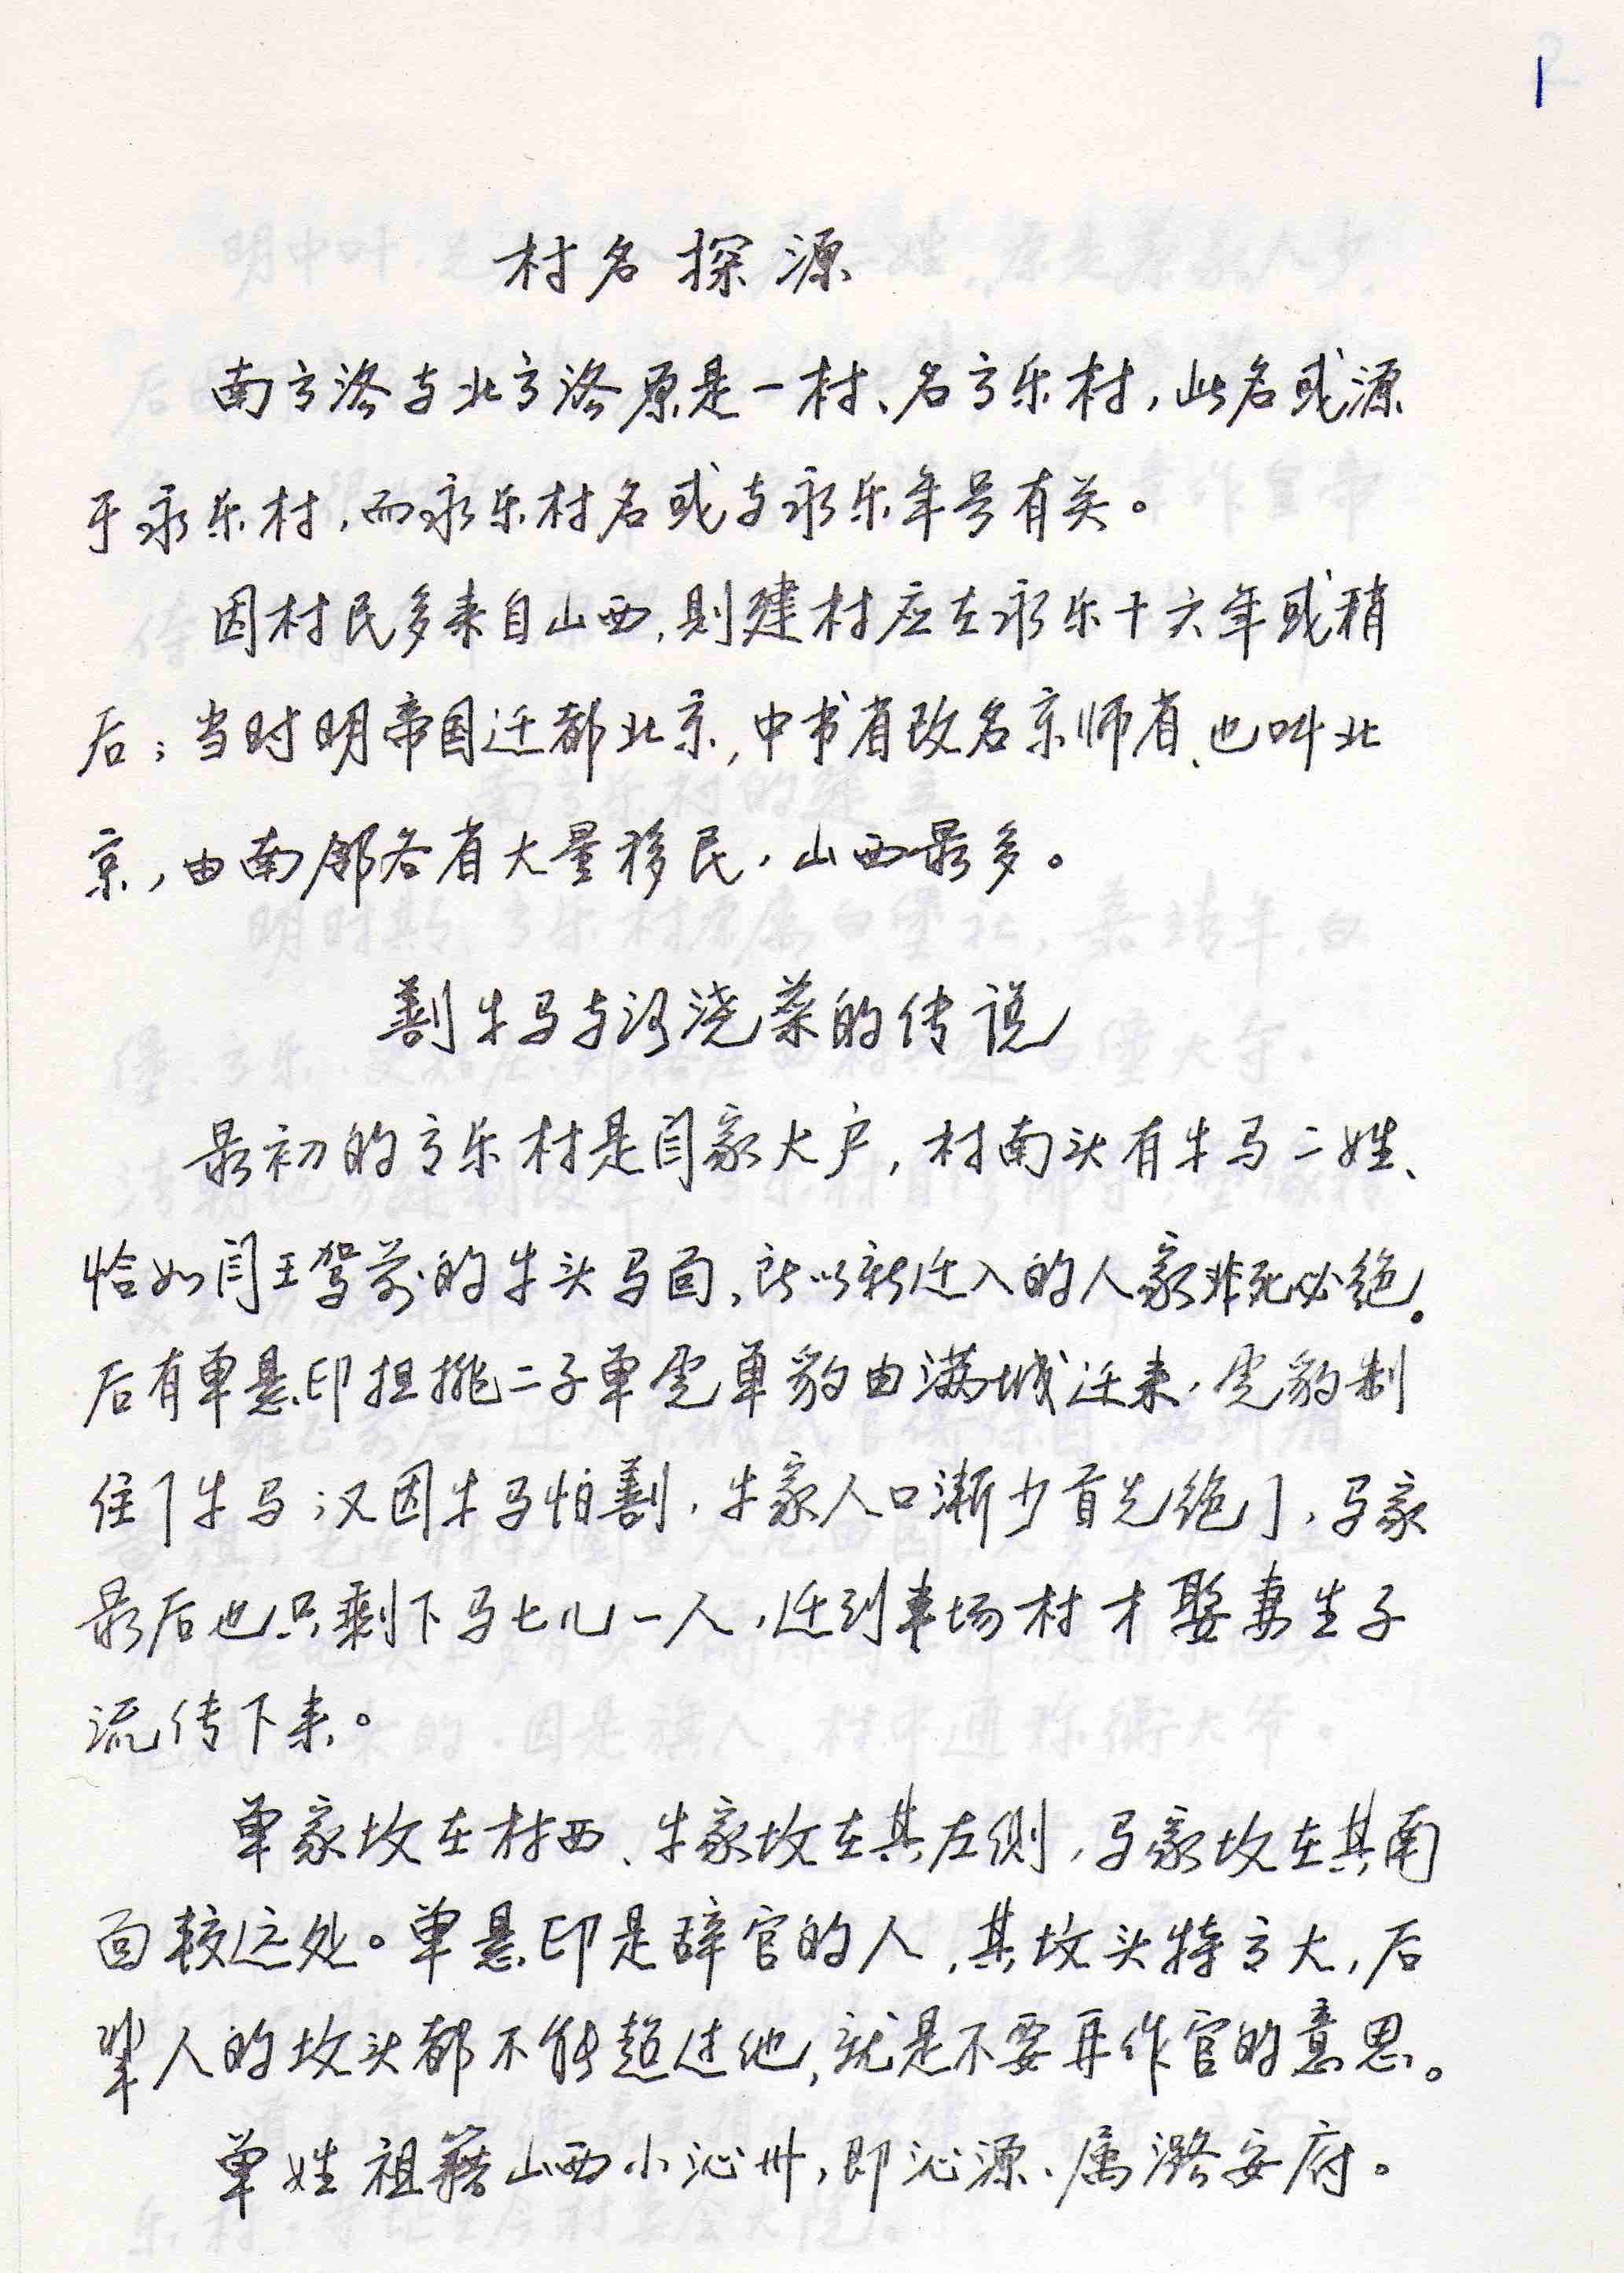 1
村名探源
南高洛与北高洛原是一村、名高乐村，此名或源
于永乐村，而永乐村名或与永乐年号有关。
因村民多来自山西，则建村应在永乐十六年或稍
后；当时明帝国迁都北京，中书省改名京师省、也叫北
京，由南邻各省大量移民，山西最多。
牛马与浇菜的传说
最初的高乐村是闫家大户，村南头有牛马二姓、
恰如闫王驾前的牛头马面，所以新迁入的人家非死必绝。
后有单悬印担挑二子单虎单豹由满城迁来，虎豹制
住了牛马；又因牛马怕，牛家人口渐少首先绝门，马家
最后也只剩下马七儿一人，迁到車场村才娶妻生子
流传下来。
单家坟在村西、牛家坟在其左侧，马家坟在其南
面较远处。单悬印是辞官的人，其坟头特高大，后
辈人的坟头都不能超过他，就是不要再作官的意思。
单姓祖籍山西小沁州，即沁源、属潞安府。